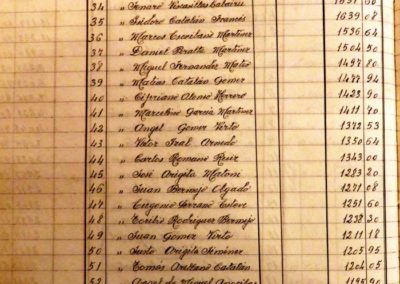 34 " Genaro
35 " Isidoro Catalán Francés 1639 08
36 " Marcos Escribano Martínez 1536 64
37 " Daniel Peralta Martínez 1504 50
38 " Miguel Fernández Mateo 1497 80
39 " Matías Catalán Gomez 1477 94
40 " Cipriano Alonso Herrero 1423 90
41 " Marcelino García Martínez 1411 70
42 " Angel Gomez Virto 1372 53
43 " Victor Gral Arnedo 1350 64
44 " Carlos Romano Ruiz 1343 00
45 " José Arigita Matoni 1283 20
46 " Juan Bermejo 1271 08
47 " Eugenio Serrano Esteve 1251 60
48 " Rodriguez Bermejo 1238 30
49 " Juan Gomez Virto 1211 18
50 " Justo Arigita Jimenez 1205 95
51 " Tomás Arellano Catalán 1204 05
52 " de Miguel 1195 90